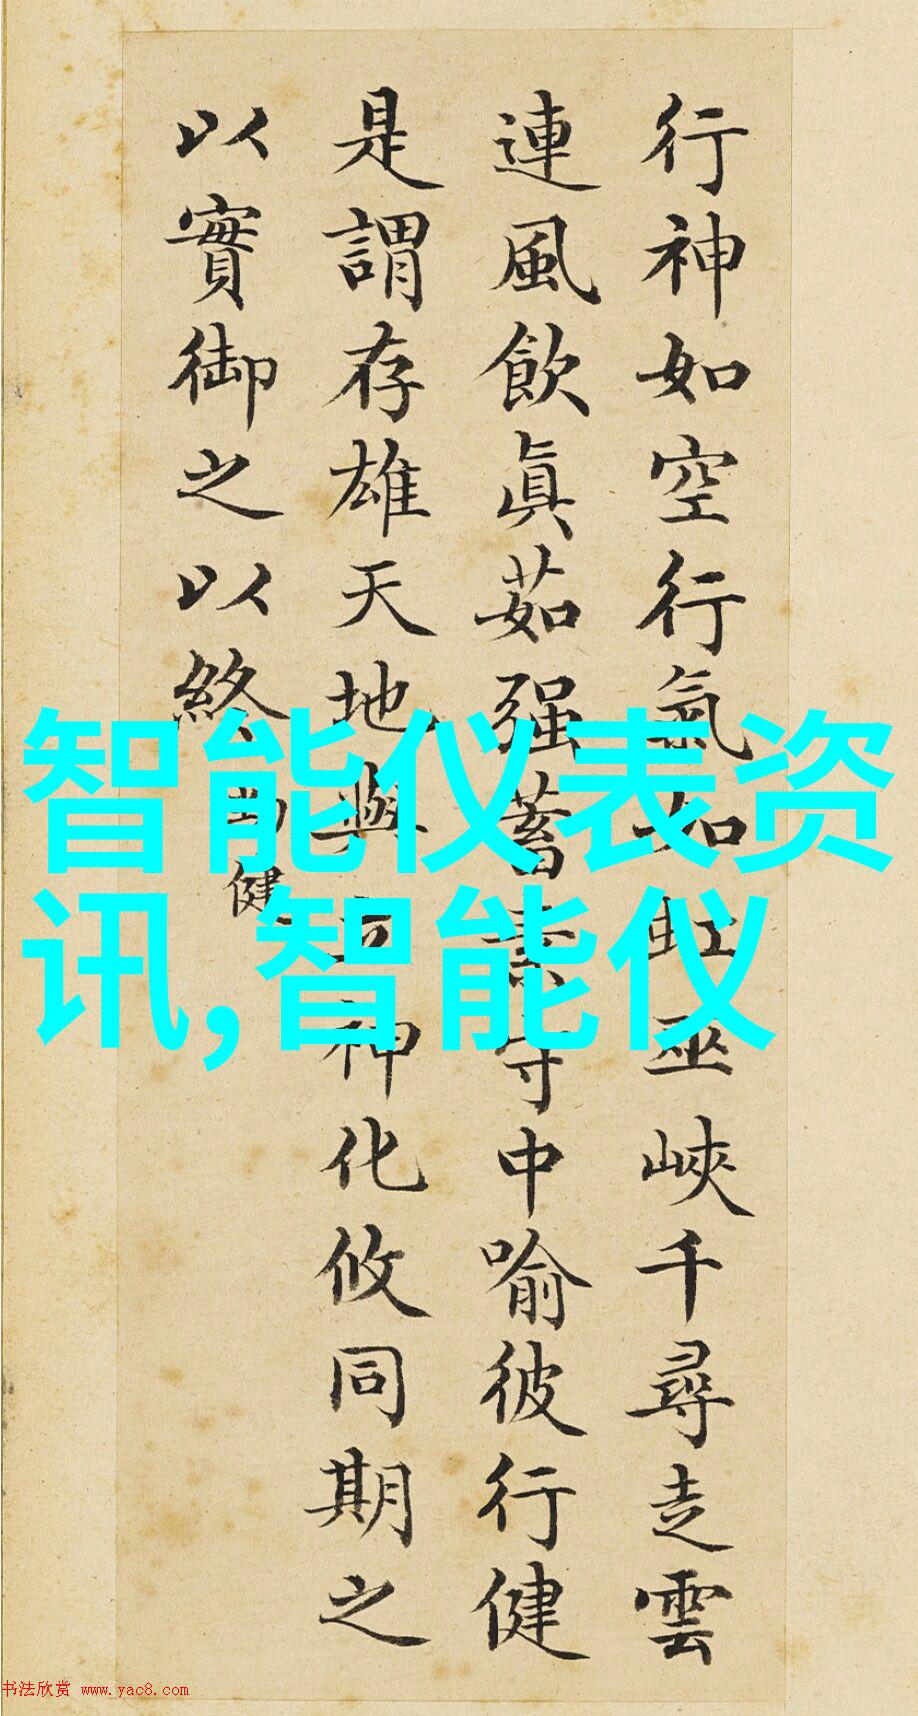 行神如空行氣如虹巫峽千尋走雲
連風飲眞茹强蓄素守中喻彼行健
是謂存雄天地與立神化攸同期之
以實御之以終
勁健
智能仪表资
讯,智能仪
书法欣赏 www.yac8.com